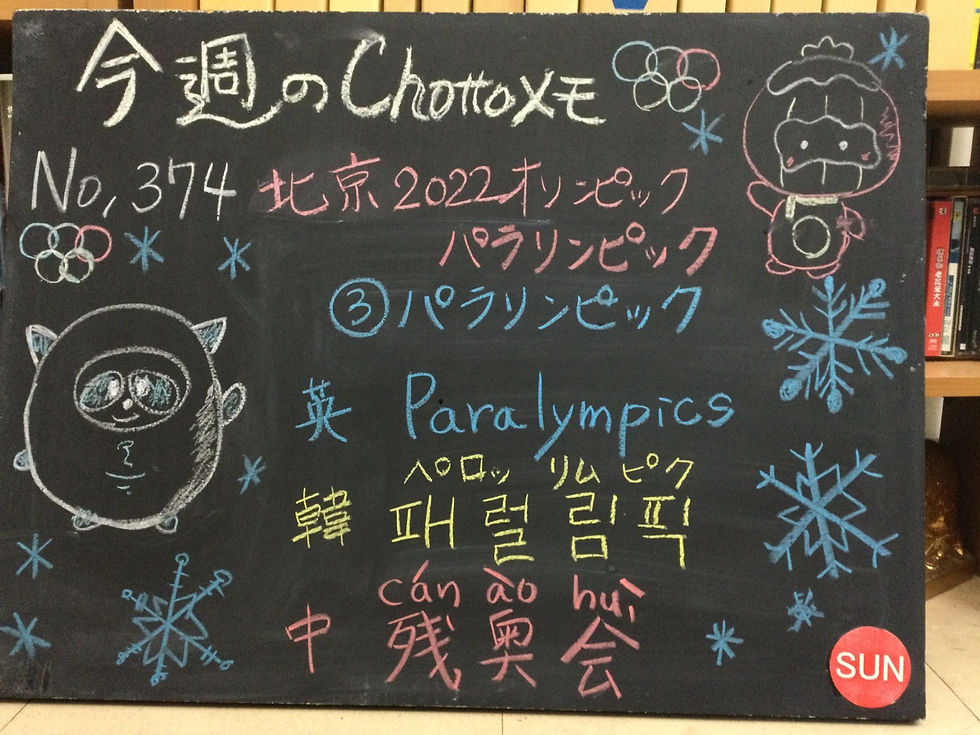 今週のChottoメモ
No,374 北京2022オリンピック
パラリンピック
③パラリンピック
英 Paralympics
ペロッ リム ピク
韓 패럴림픽
cán ào huì
中 残奥会
SUN